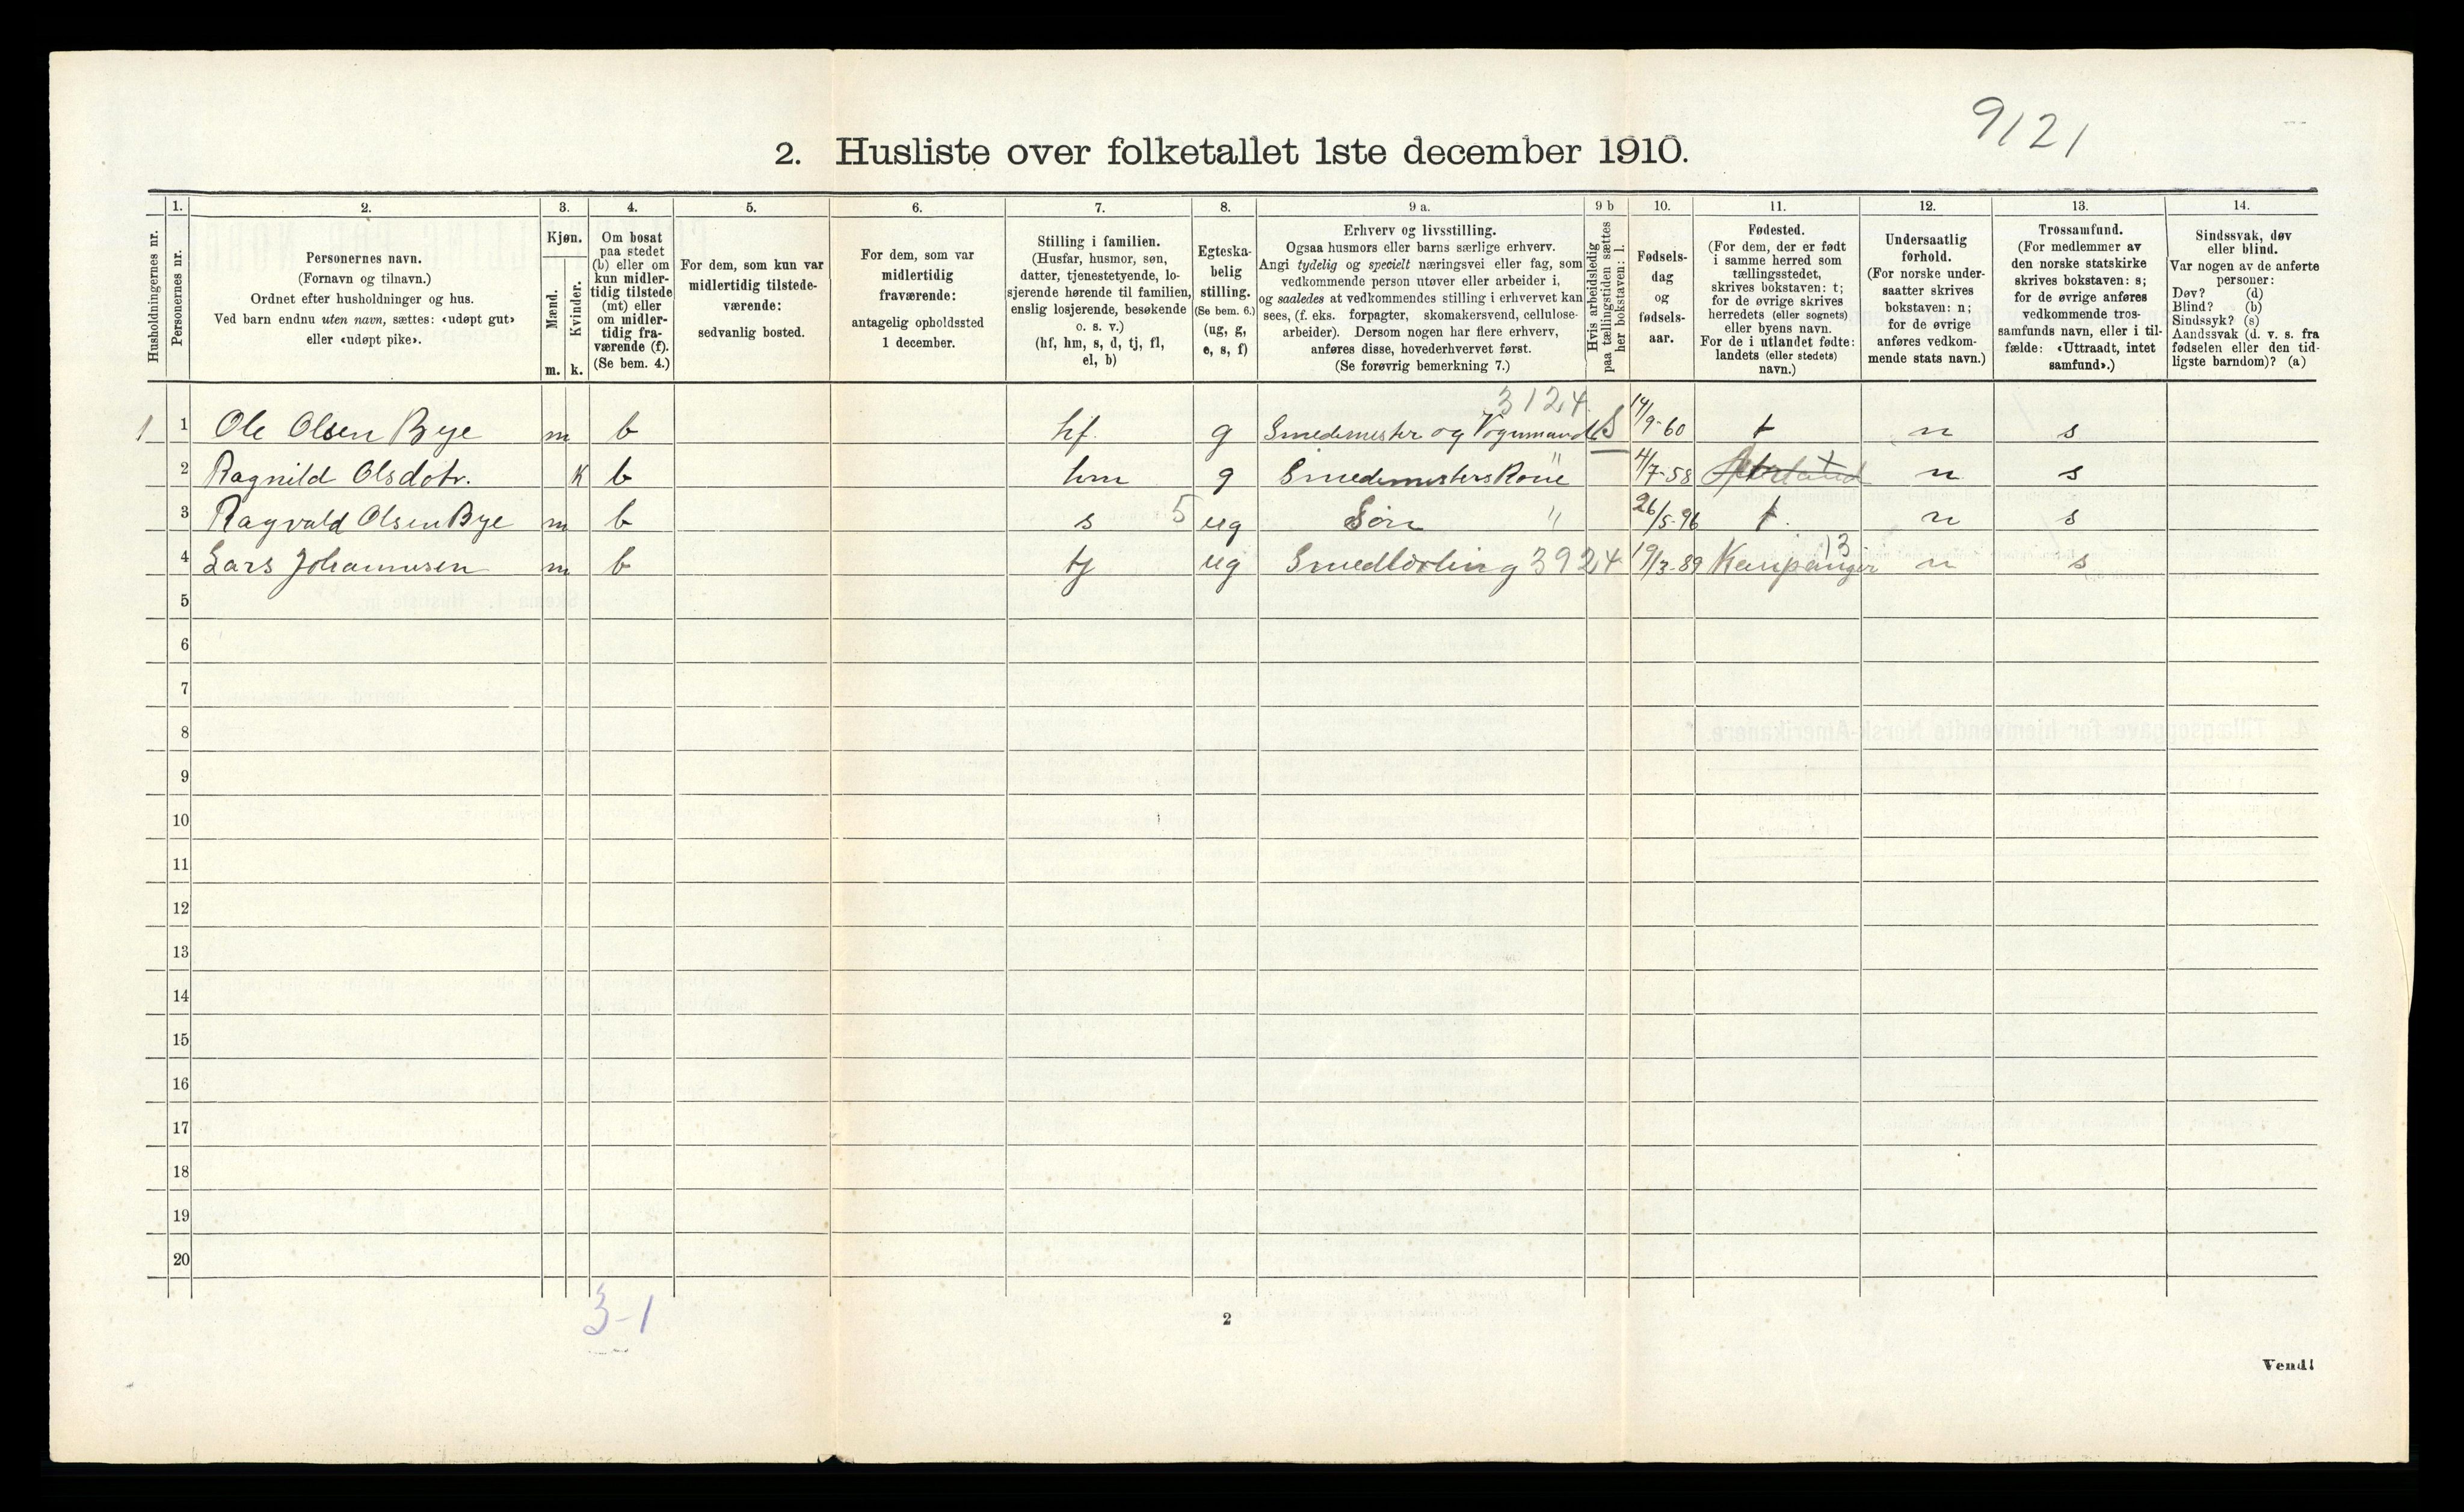 9121
2. Husliste over folketallet 1ste december 1910.
Husholdningernes nr.
1.
Personernes nr.
2.
Personernes navn.
(Fornavn og tilnavn.)
Ordnet efter husholdninger og hus.
Ved barn endnu uten navn, sættes: «udøpt gut»
eller «udøpt pike».
3.
Kjøn.
Mænd.
Kvinder.
m. k.
4.
Om bosat
paa stedet
(b) eller om
kun midler-
tidig tilstede
(mt) eller
om midler-
tidig fra-
værende (f).
(Se bem. 4.)
5.
For dem, som kun var
midlertidig tilstede-
værende:
sedvanlig bosted.
6.
For dem, som var
midlertidig
fraværende:
antagelig opholdssted
1 december.
7.
Stilling i familien.
(Husfar, husmor, søn,
datter, tjenestetyende, lo-
sjerende hørende til familien,
enslig losjerende, besøkende
o. s. v.)
(hf, hm, s, d, tj, fl,
el, b)
8.
Egteska-
belig
stilling.
(Se bem. 6.)
(ug, g,
e, s, f)
9 a.
Erhverv og livsstilling.
Ogsaa husmors eller barns særlige erhverv.
Angi tydelig og specielt næringsvei eller fag, som
vedkommende person utøver eller arbeider i,
og saaledes at vedkommendes stilling i erhvervet kan
sees, (f. eks. forpagter, skomakersvend, cellulose-
arbeider). Dersom nogen har flere erhverv,
anføres disse, hovederhvervet først.
(Se forøvrig bemerkning 7.)
9 b
Hvis arbeidsledig
paa tællingstiden sættes
her bokstaven: l.
10.
Fødsels-
dag
og
fødsels-
aar.
11.
Fødested.
(For dem, der er født
i samme herred som
tællingsstedet,
skrives bokstaven: t;
for de øvrige skrives
herredets (eller sognets)
eller byens navn.
For de i utlandet fødte:
landets (eller stedets)
navn.)
12.
Undersaatlig
forhold.
(For norske under-
saatter skrives
bokstaven: n;
for de øvrige
anføres vedkom-
mende stats navn.)
13.
Trossamfund.
(For medlemmer av
den norske statskirke
skrives bokstaven: s;
for de øvrige anføres
vedkommende tros-
samfunds navn, eller i til-
fælde: «Uttraadt, intet
samfund».)
14.
Sindssvak, døv
eller blind.
Var nogen av de anførte
personer:
Døv? (d)
Blind? (b)
Sindssyk? (s)
Aandssvak (d. v. s. fra
fødselen eller den tid-
ligste barndom)? (a)
3124
1 1 Ole Olsen Bye m b hf. g Smedemester og Vognmand S 14/9-60 t n s
2 Ragnild Olsdotr. K b hm g Smedemesters Kone " 4/7-58 t n s
3 Ragvald Olsen Bye m b s 5 ug Søn " 26/5-96 t. n s
4 Lars Johannesen m b tj ug Smedlærling 3924 19/3-89 Kaupanger 13 n s
5
6
7
8
9
10
11
12
13
14
15
16
17
18
19
20
3-1
2
Vend!